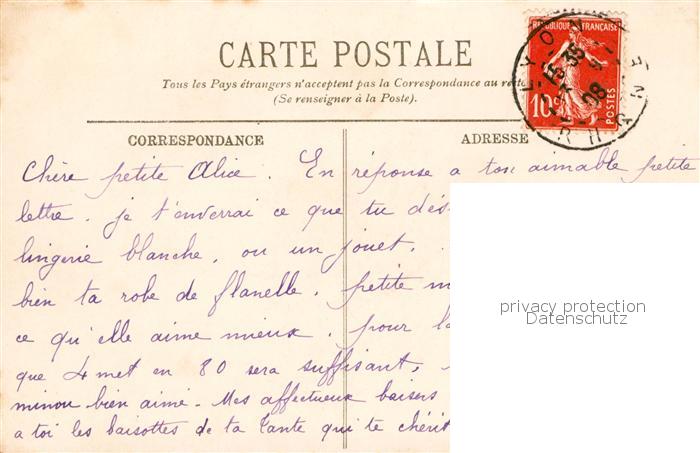 CARTE POSTALE
Tous les Pays étrangers n'acceptent pas la Correspondance au recto
(Se renseigner à la Poste).
RÉPUBLIQUE FRANÇAISE
10c
POSTES
LYON
15 35
08
RHONE
CORRESPONDANCE
ADRESSE
Chère petite Alice. En réponse a ton aimable petite
lettre. je t'enverrai ce que tu dés
lingerie blanche, ou un jouet.
bien ta robe de flanelle. petite m
ce qu'elle aime mieux. pour la
que 4 met en 80 sera suffisant,
minou bien aimé. Mes affectueux baisers
a toi les baisottes de ta Tante qui te chérit
privacy protection
Datenschutz